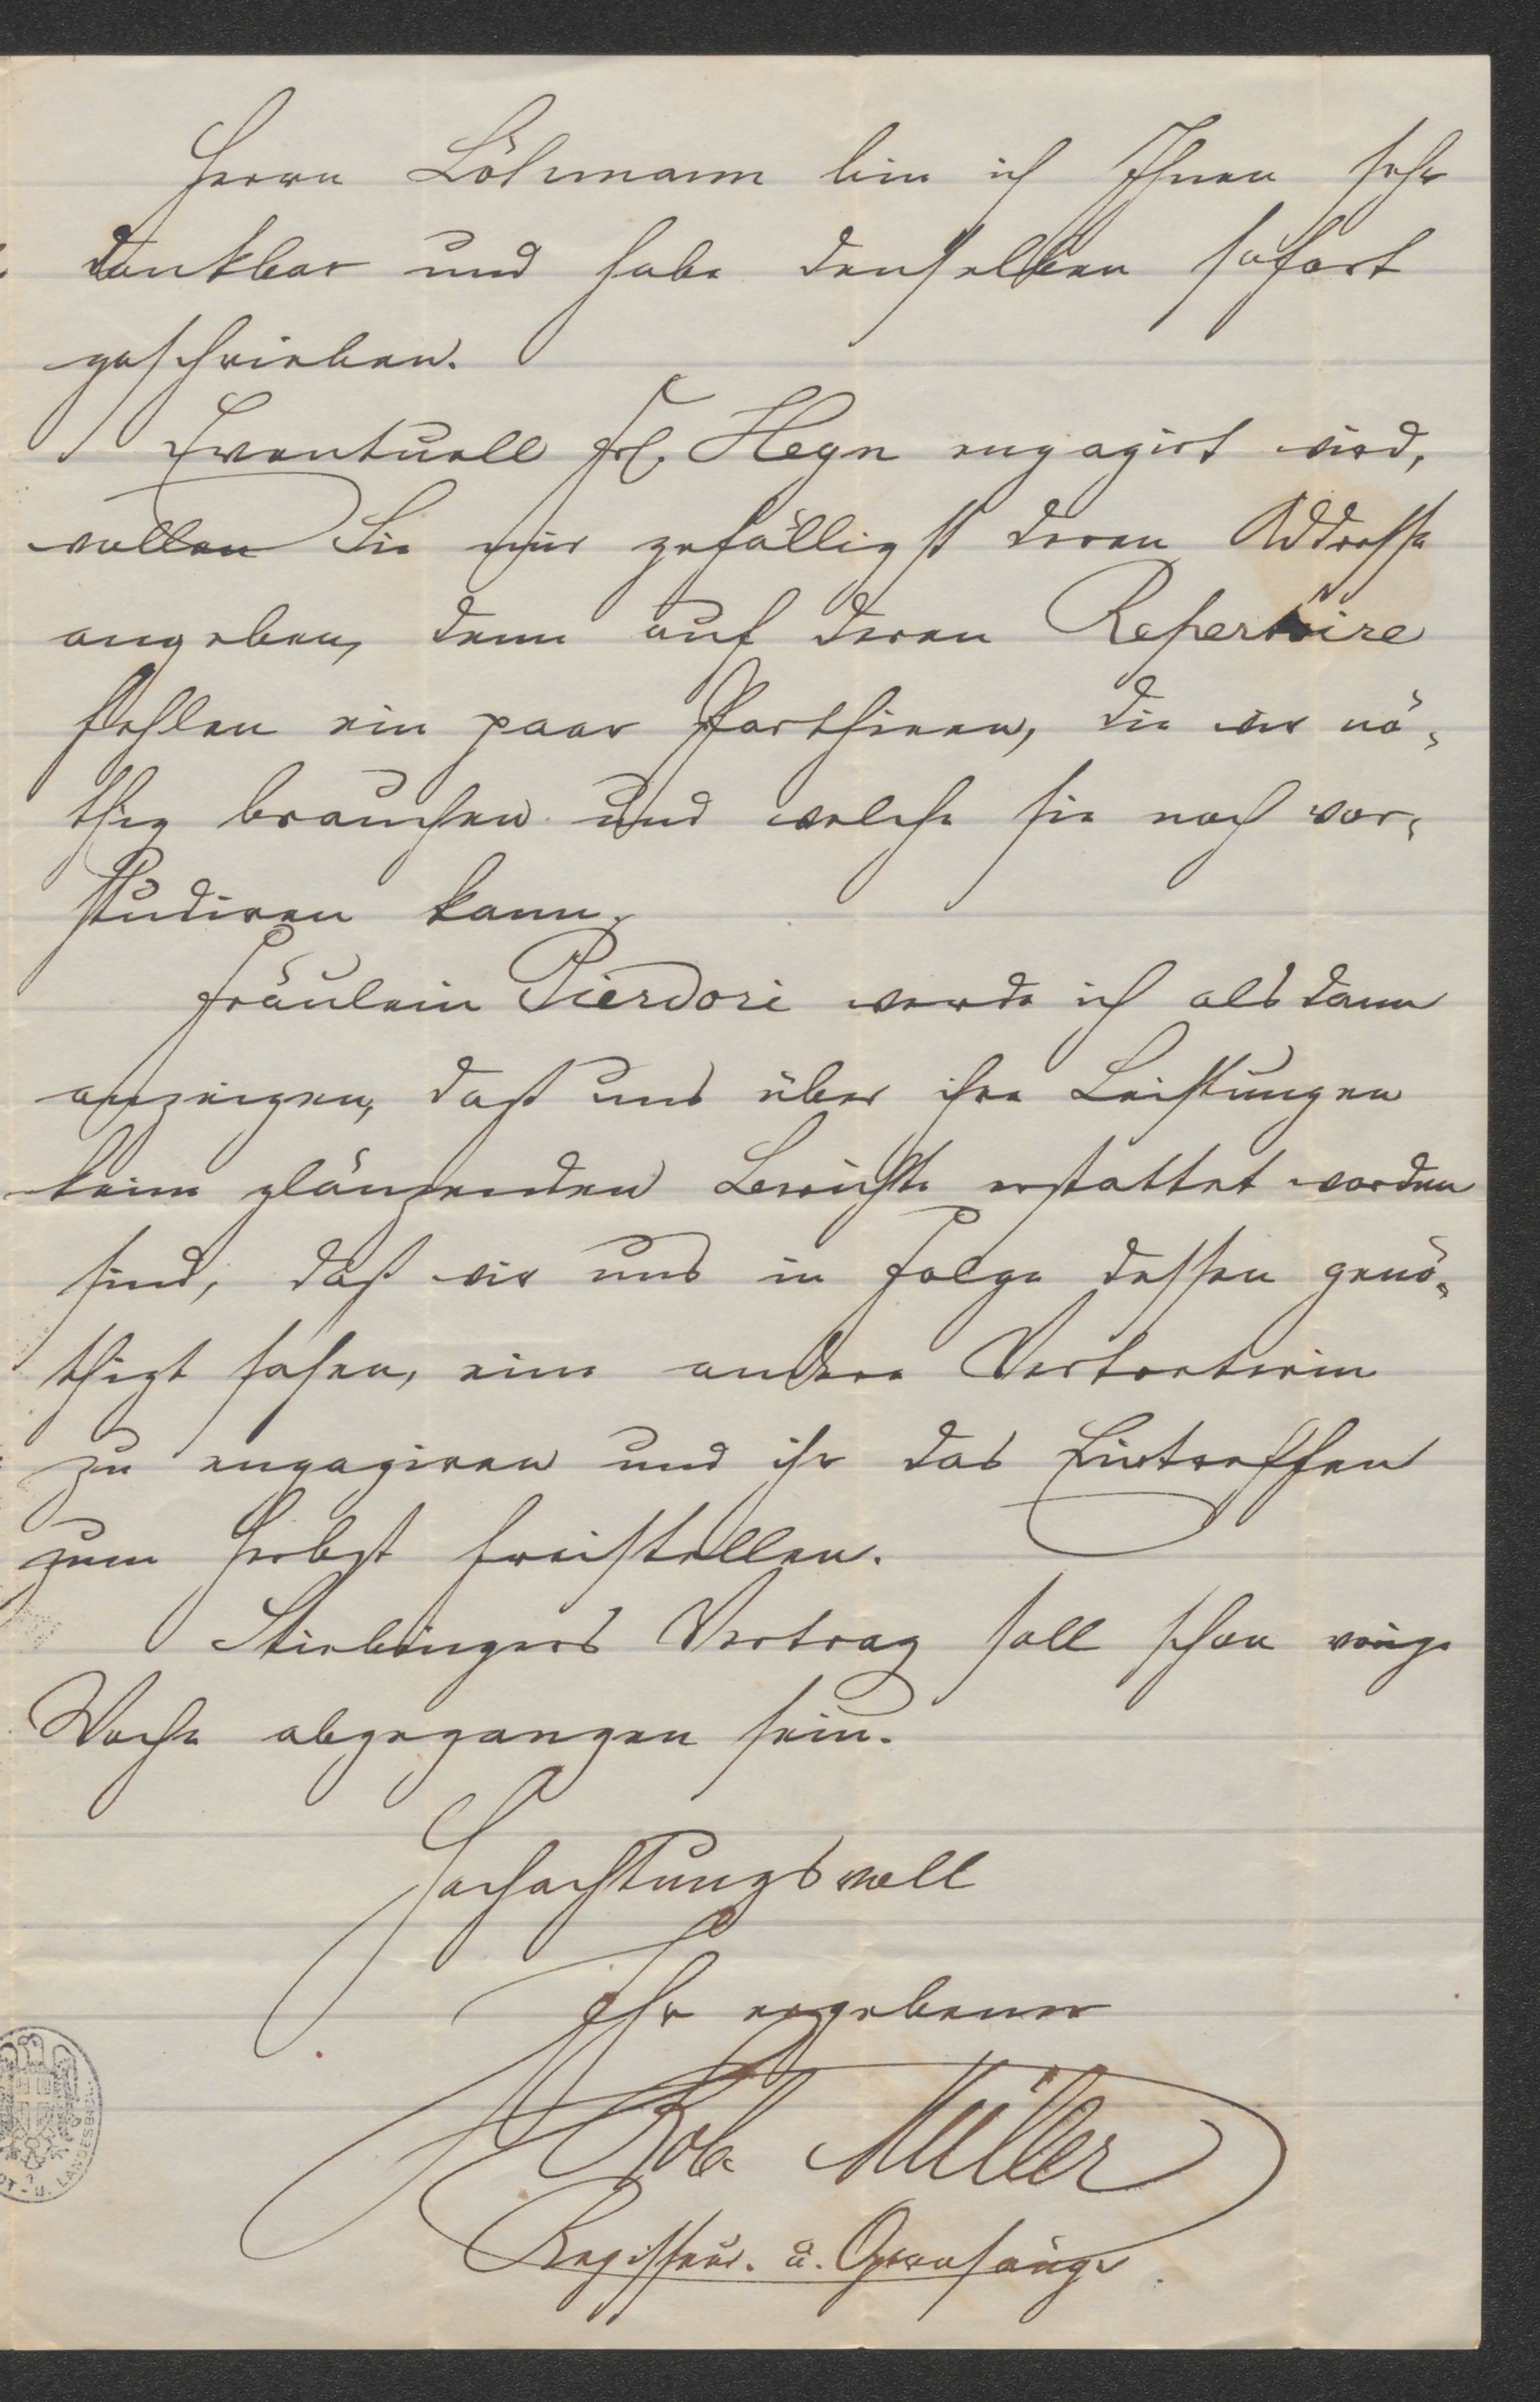 Herrn Löhmann bin ich Ihnen sehr
dankbar und habe denselben sofort
geschrieben.
Eventuell Frl. Hegn engagirt wird,
wollen Sie mir gefälligst deren Addresse
angeben, denn auf deren Repertoire
fehlen ein paar Parthieen, die wir nö-
thig brauchen und welche sie noch vor-
studiren kann.
Fräulein Pierdori werde ich alsdann
anzeigen, daß uns über ihre Leistungen
keine glänzenden Berichte erstattet worden
sind, daß wir uns in Folge dessen genö-
thigt sahen, eine andere Vertreterin
zu engagiren und ihr das Eintreffen
zum Herbst freistellen.
Stierlingers Vertrag soll schon vorige
Woche abgegangen sein.
Hochachtungsvoll
Ihr ergebener
Rob. Müller
Regisseur. u. Opernsänger